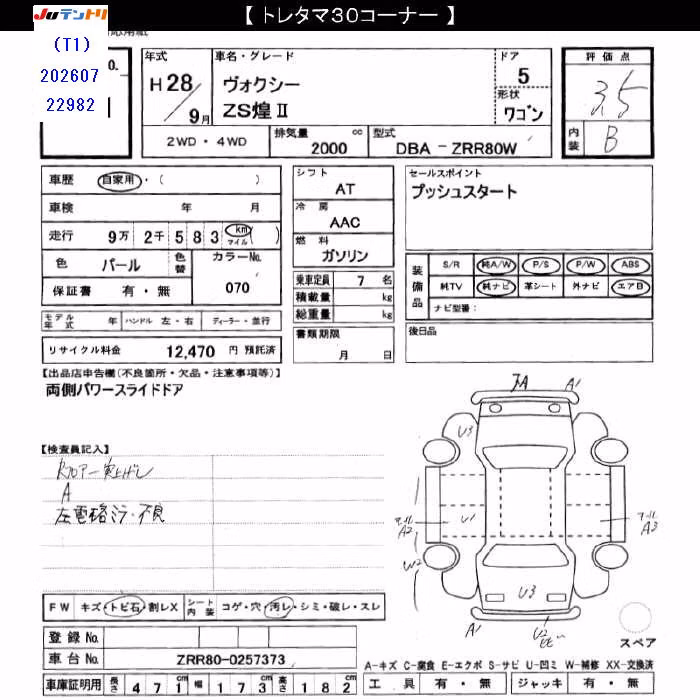 【 トレタマ30コーナー 】
JUテントリ
(T1)
202607
22982
年式
H28/9月
車名・グレード
ヴォクシー
ZS煌Ⅱ
ドア
5
形状
ワゴン
評価点
3.5
内装
B
2WD・4WD
排気量
2000
cc
型式
DBA－ZRR80W
車歴
自家用・( )
車検
年 月
走行
9万 2千 5 8 3 km マイル ( )
色
パール
色替
カラーNo.
070
保証書
有・無
シフト
AT
冷房
AAC
燃料
ガソリン
乗車定員
7 名
積載量
kg
総重量
kg
書類期限
月 日
セールスポイント
プッシュスタート
装備品
S/R 純A/W P/S P/W ABS
純TV 純ナビ 革シート 外ナビ エアB
ナビ型番:
後日品
モデル年式
年
ハンドル 左・右
ディーラー・並行
リサイクル料金
12,470 円 預託済
【出品店申告欄(不良箇所・欠品・注意事項等)】
両側パワースライドドア
【検査員記入】
A
左電格ミラー不良
FW
キズ・トビ石・割レX
シート内装
コゲ・穴・汚レ・シミ・破レ・スレ
登録No.
車台No.
ZRR80-0257373
車庫証明用
長さ 471cm 幅 173cm 高さ 182cm
A
A1
U3
U1
A2
W2
A3
U3
A1
U2
スペア
A-キズ C-腐食 E-エクボ S-サビ U-凹ミ W-補修 XX-交換済
工具
有・無
ジャッキ
有・無